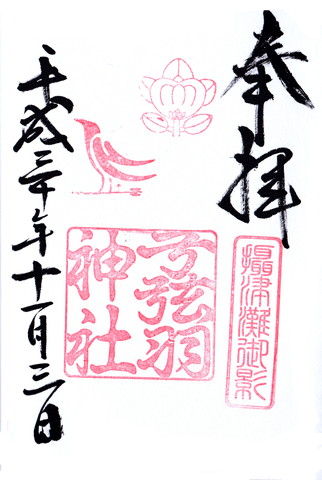 奉拝
攝津灘御影
弓弦羽
神社
平成三十年十一月三日